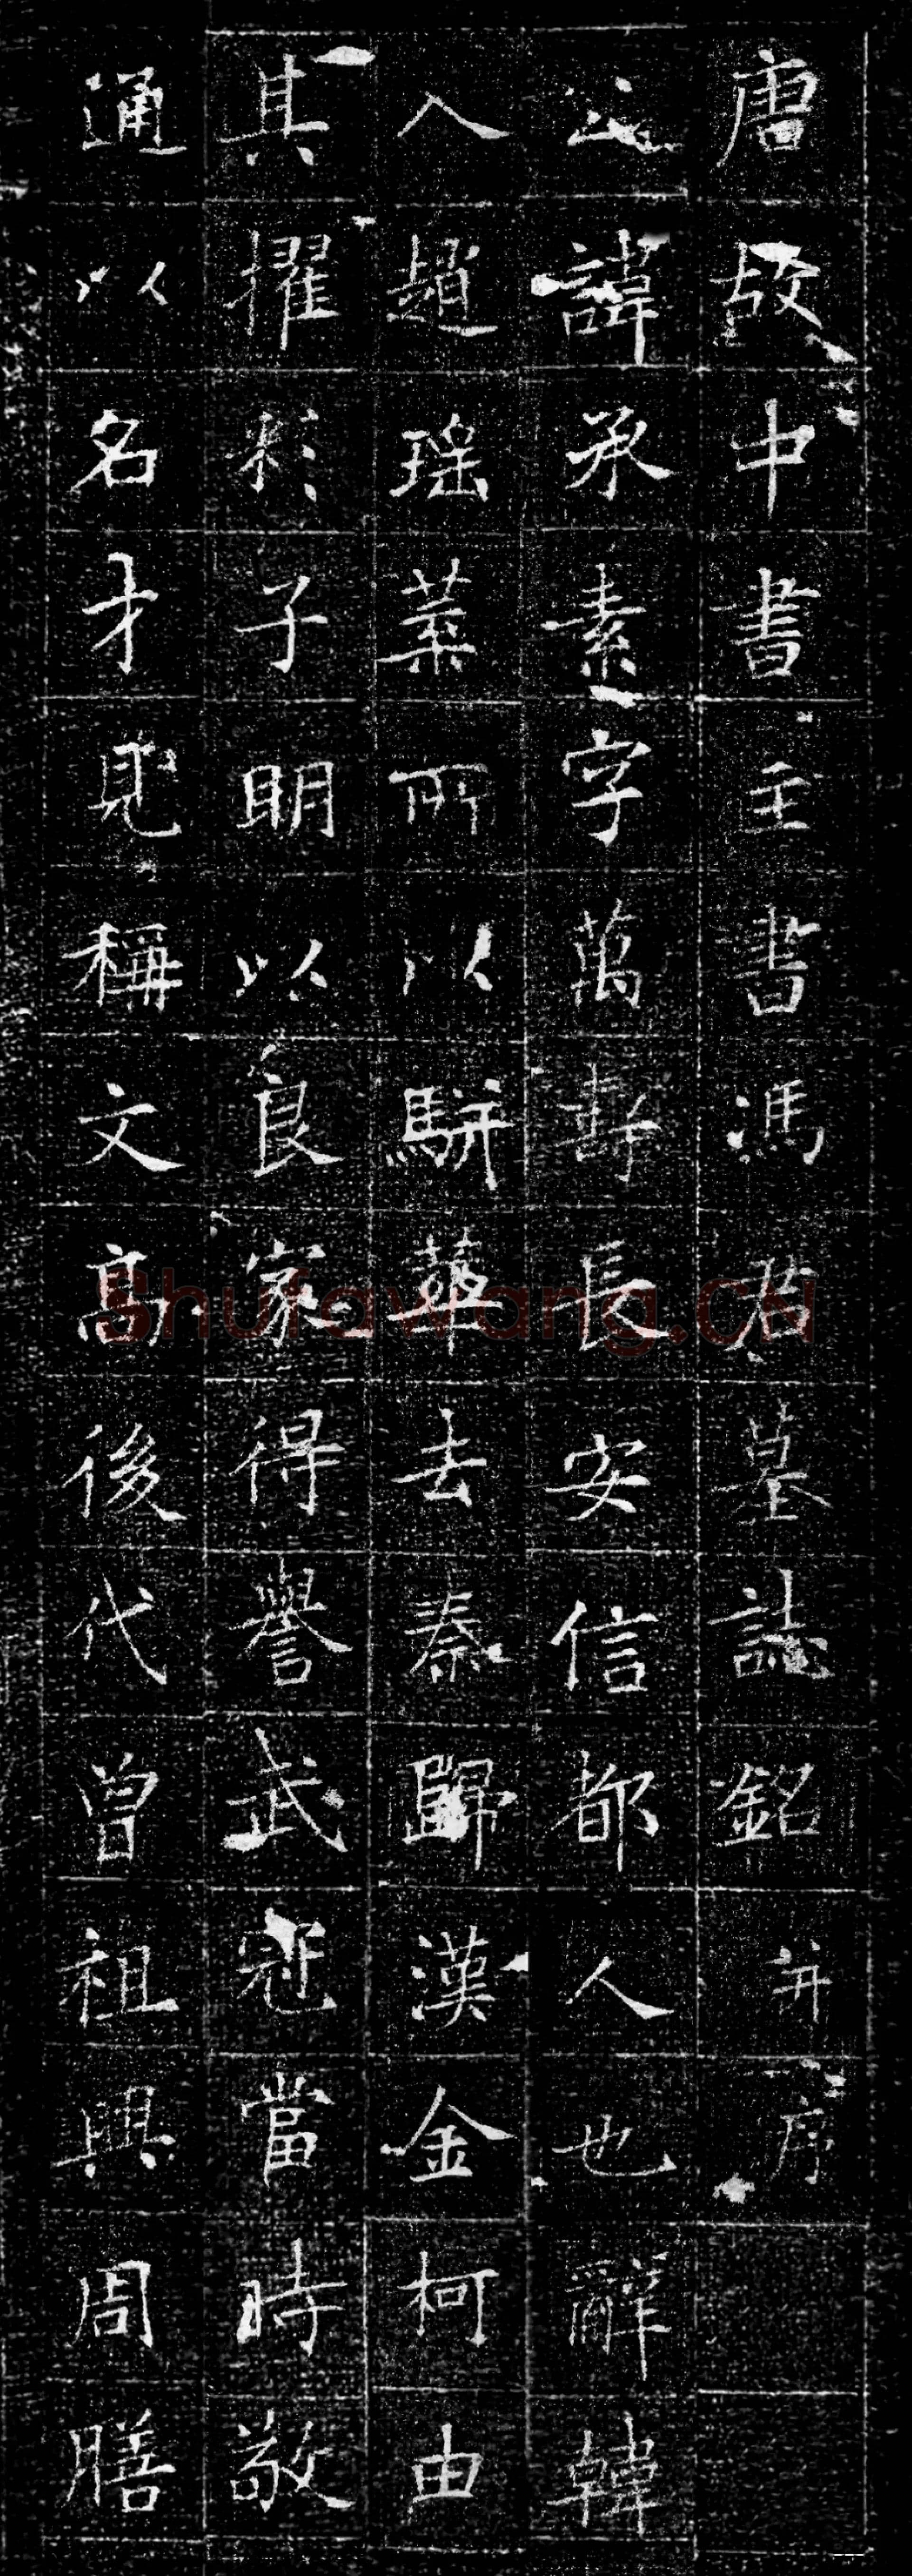 唐故中書主書馮君墓誌銘并序
公諱承素字萬壽長安信都人也辭韓
入趙瑶葉所以駢華去秦歸漢金柯由
其擢彩子明以良家得譽武冠當時敬
通以名才見稱文高後代曾祖興周膳
Shufawang.CN